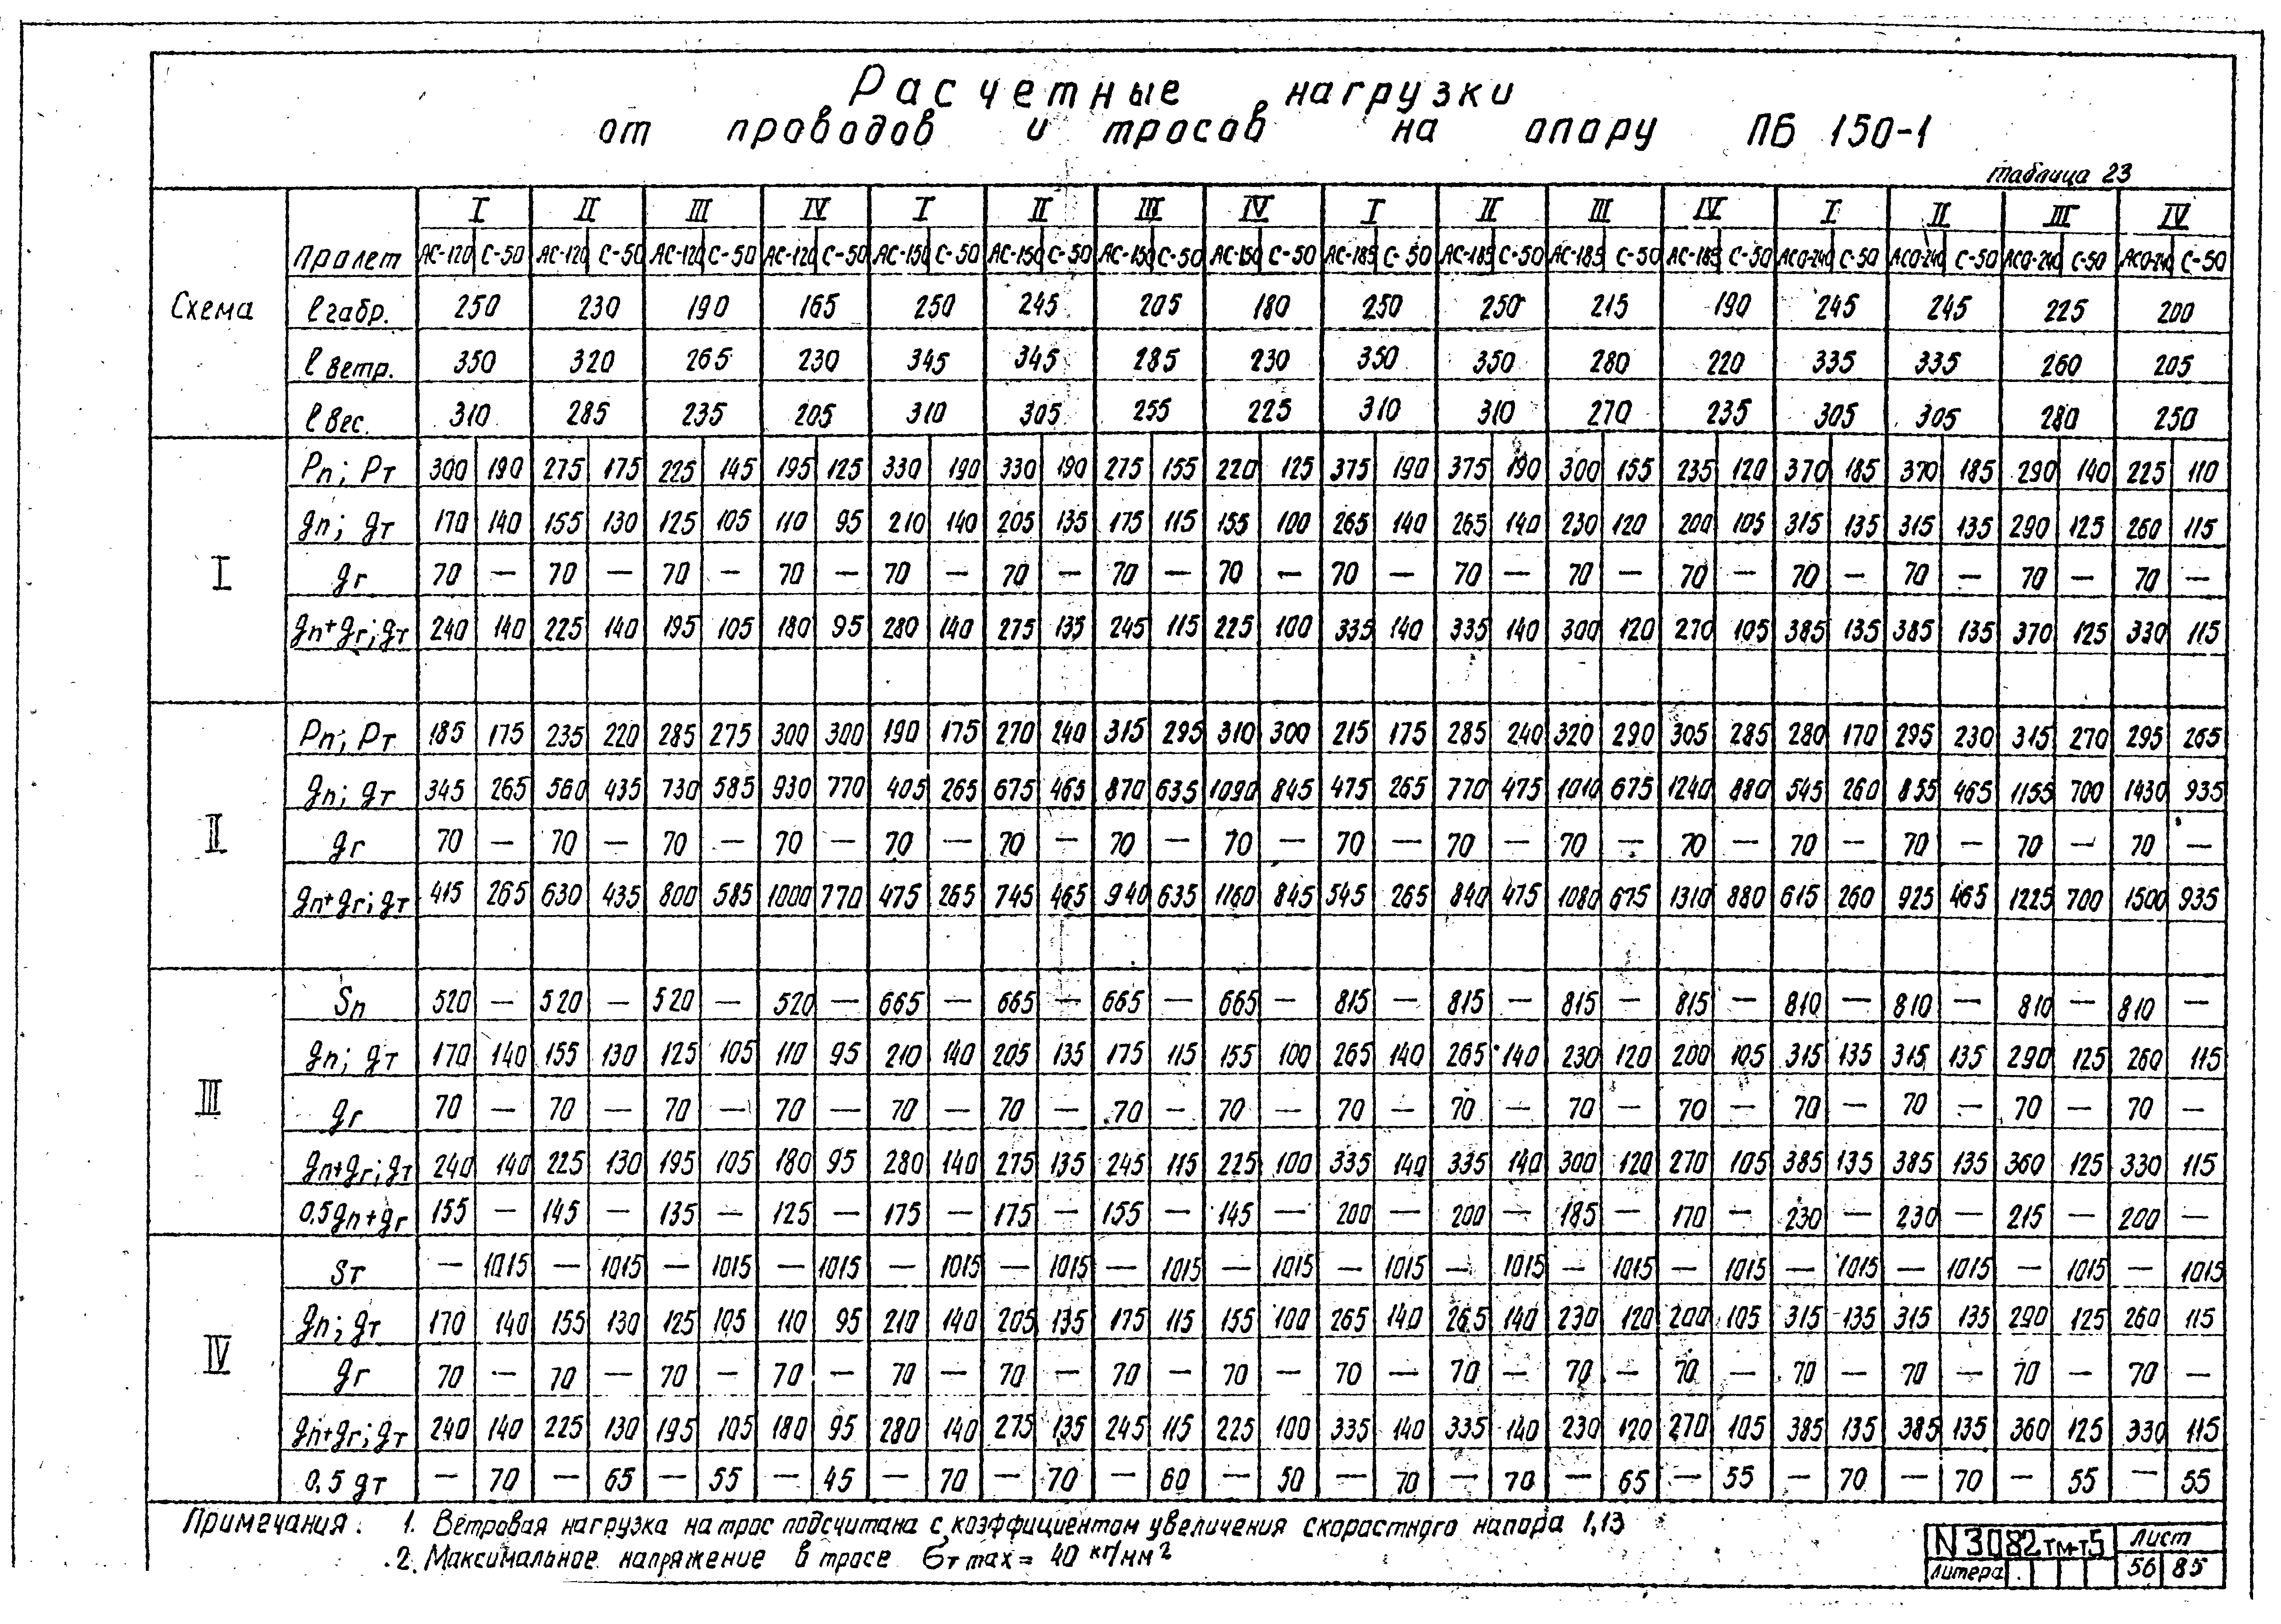 Расчетные нагрузки
от проводов и тросов на опору ПБ 150-1
таблица 23
Схема Пролет I II III IV I II III IV I II III IV I II III IV
АС-120 С-50 АС-120 С-50 АС-120 С-50 АС-120 С-50 АС-150 С-50 АС-150 С-50 АС-150 С-50 АС-150 С-50 АС-185 С-50 АС-185 С-50 АС-185 С-50 АС-185 С-50 АСО-240 С-50 АСО-240 С-50 АСО-240 С-50 АСО-240 С-50
ℓ габр. 250 230 190 165 250 245 205 180 250 250 215 190 245 245 225 200
ℓ ветр. 350 320 265 230 345 345 285 230 350 350 280 220 335 335 260 205
ℓ вес. 310 285 235 205 310 305 255 225 310 310 270 235 305 305 280 250
I
Рп; Рт 300 190 275 175 225 145 195 125 330 190 330 190 275 155 220 125 375 190 375 190 300 155 235 120 370 185 370 185 290 140 225 110
gп; gт 170 140 155 130 125 105 110 95 210 140 205 135 175 115 155 100 265 140 265 140 230 120 200 105 315 135 315 135 290 125 260 115
gг 70 — 70 — 70 — 70 — 70 — 70 — 70 — 70 — 70 — 70 — 70 — 70 — 70 — 70 — 70 — 70 —
gп+gг; gт 240 140 225 140 195 105 180 95 280 140 275 135 245 115 225 100 335 140 335 140 300 120 270 105 385 135 385 135 370 125 330 115
II
Рп; Рт 185 175 235 220 285 275 300 300 190 175 270 240 315 295 310 300 215 175 285 240 320 290 305 285 280 170 295 230 315 270 295 265
gп; gт 345 265 560 435 730 585 930 770 405 265 675 465 870 635 1090 845 475 265 770 475 1010 675 1240 880 545 260 855 465 1155 700 1430 935
gг 70 — 70 — 70 — 70 — 70 — 70 — 70 — 70 — 70 — 70 — 70 — 70 — 70 — 70 — 70 — 70 —
gп+gг; gт 415 265 630 435 800 585 1000 770 475 265 745 465 940 635 1160 845 545 265 840 475 1080 675 1310 880 615 260 925 465 1225 700 1500 935
III
Sп 520 — 520 — 520 — 520 — 665 — 665 — 665 — 665 — 815 — 815 — 815 — 815 — 810 — 810 — 810 — 810 —
gп; gт 170 140 155 130 125 105 110 95 210 140 205 135 175 115 155 100 265 140 265 140 230 120 200 105 315 135 315 135 290 125 260 115
gг 70 — 70 — 70 — 70 — 70 — 70 — 70 — 70 — 70 — 70 — 70 — 70 — 70 — 70 — 70 — 70 —
gп+gг; gт 240 140 225 130 195 105 180 95 280 140 275 135 245 115 225 100 335 140 335 140 300 120 270 105 385 135 385 135 360 125 330 115
0,5gп+gг 155 — 145 — 135 — 125 — 175 — 175 — 155 — 145 — 200 — 200 — 185 — 170 — 230 — 230 — 215 — 200 —
IV
Sт — 1015 — 1015 — 1015 — 1015 — 1015 — 1015 — 1015 — 1015 — 1015 — 1015 — 1015 — 1015 — 1015 — 1015 — 1015 — 1015
gп; gт 170 140 155 130 125 105 110 95 210 140 205 135 175 115 155 100 265 140 265 140 230 120 200 105 315 135 315 135 290 125 260 115
gг 70 — 70 — 70 — 70 — 70 — 70 — 70 — 70 — 70 — 70 — 70 — 70 — 70 — 70 — 70 — 70 —
gп+gг; gт 240 140 225 130 195 105 180 95 280 140 275 135 245 115 225 100 335 140 335 140 230 120 270 105 385 135 385 135 360 125 330 115
0,5 gт — 70 — 65 — 55 — 45 — 70 — 70 — 60 — 50 — 70 — 70 — 65 — 55 — 70 — 70 — 55 — 55
Примечания: 1. Ветровая нагрузка на трос подсчитана с коэффициентом увеличения скоростного напора 1,13
2. Максимальное напряжение в тросе бт max = 40 кг/мм2
N 3082тм-т5 Лист
литера 56 85